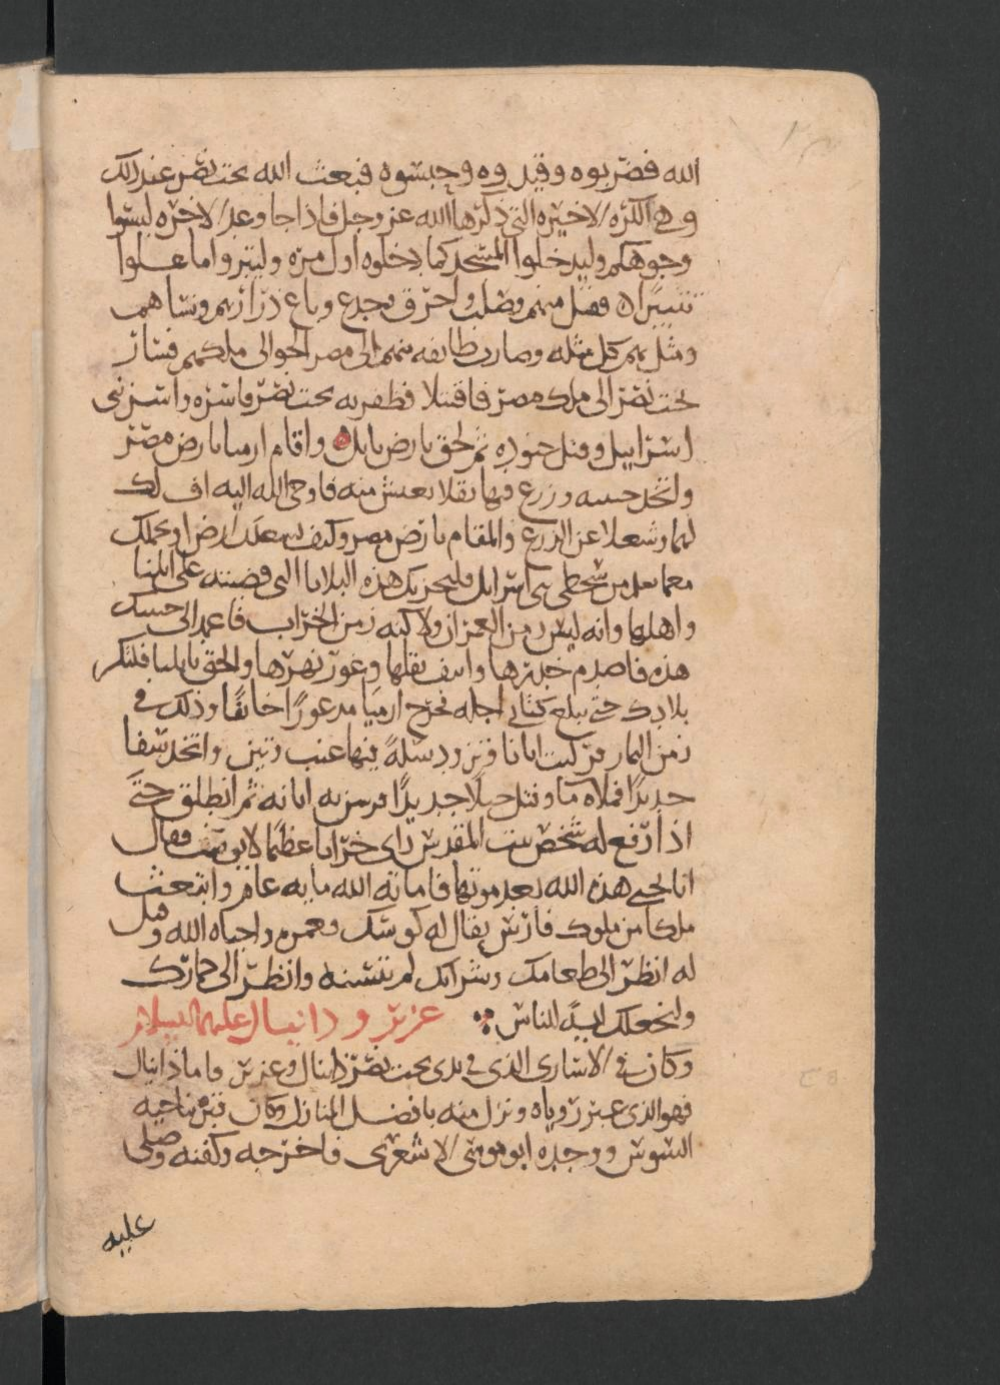 الله فضربوه وقيدوه وحبسوه فبعث الله بخت نصر عند ذلك
وهي الكره الاخيره التي ذكرها الله عز وجل فاذا جا وعد الاخره ليسوا
وجوهكم وليدخلوا المسجد كما دخلوه اول مره وليتبروا ما علوا
تتبيرا ه فقتل منهم وصلب واحرق وجدع وباع ذراريهم ونساهم
ومثل بهم كل مثله وصارت طايفه منهم الى مصر الجوا الى ملكهم فسار
بخت نصر الى ملك مصر فاقتتلا فظفر به بخت نصر فاسره واسر بني
اسراييل وقتل جنوده ثم لحق بارض بابل ه واقام ارميا بارض مصر
واتخذ جنينه وزرع فيها بقلا يعيش منه فاوحى الله اليه ان لك
لهما وشغلا عن الزرع والمقام بارض مصر وكيف تسعك ارض او تحملك
مع ما تعلم من سخطي بني اسرايل فليحزنك هذه البلايا التي قضيته على ايليا
واهلها وانه ليس زمن العمران ولاكنه زمن الخراب فاعمد الى جنينتك
هذه فاهدم جدرها وانتف بقلها وغور نهرها والحق بايليا فلتكن
بلادك حتى يبلغ كتابي اجله فخرج ارميا مذعورا خايفا وذلك في
زمن الثمار فركب اتانا وتزود سلة فيها عنب وتين واتخذ سقا
جديدا فملاه ما وفتل حبلا جديدا فرسن به اتانه ثم انطلق حتى
اذا رفع له شخص بيت المقدس راى خرابا عظيما لا يوصف فقال
انا يحيي هذه الله بعد موتها فاماته الله مايه عام وابتعث
ملكا من ملوك فارس يقال له كوشك فعمره واحياه الله وقيل
له انظر الى طعامك وشرابك لم يتسنه وانظر الى حمارك
ولنجعلك اية للناس عزير و دانيال عليهما السلام
وكان في الاسارى الذي في يدي بخت نصر دانيال وعزير فاما دانيال
فهو الذي عبر رؤياه ونزل منه بافضل المنازل وكان قبره بناحيه
السوس ووجده ابو موسى الاشعري فاخرجه وكفنه وصلى
عليه